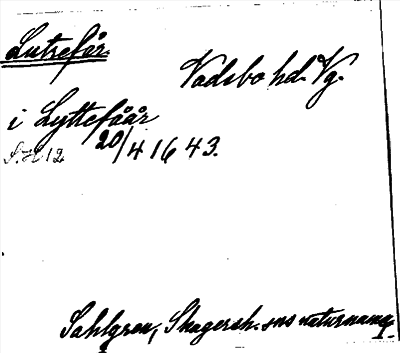 Lutrefår.
Vadsbo hd. Vg.
i Lyttefåår
S.H 12. 20/4 1643.
Sahlgren, Skagersh. sns naturnamn